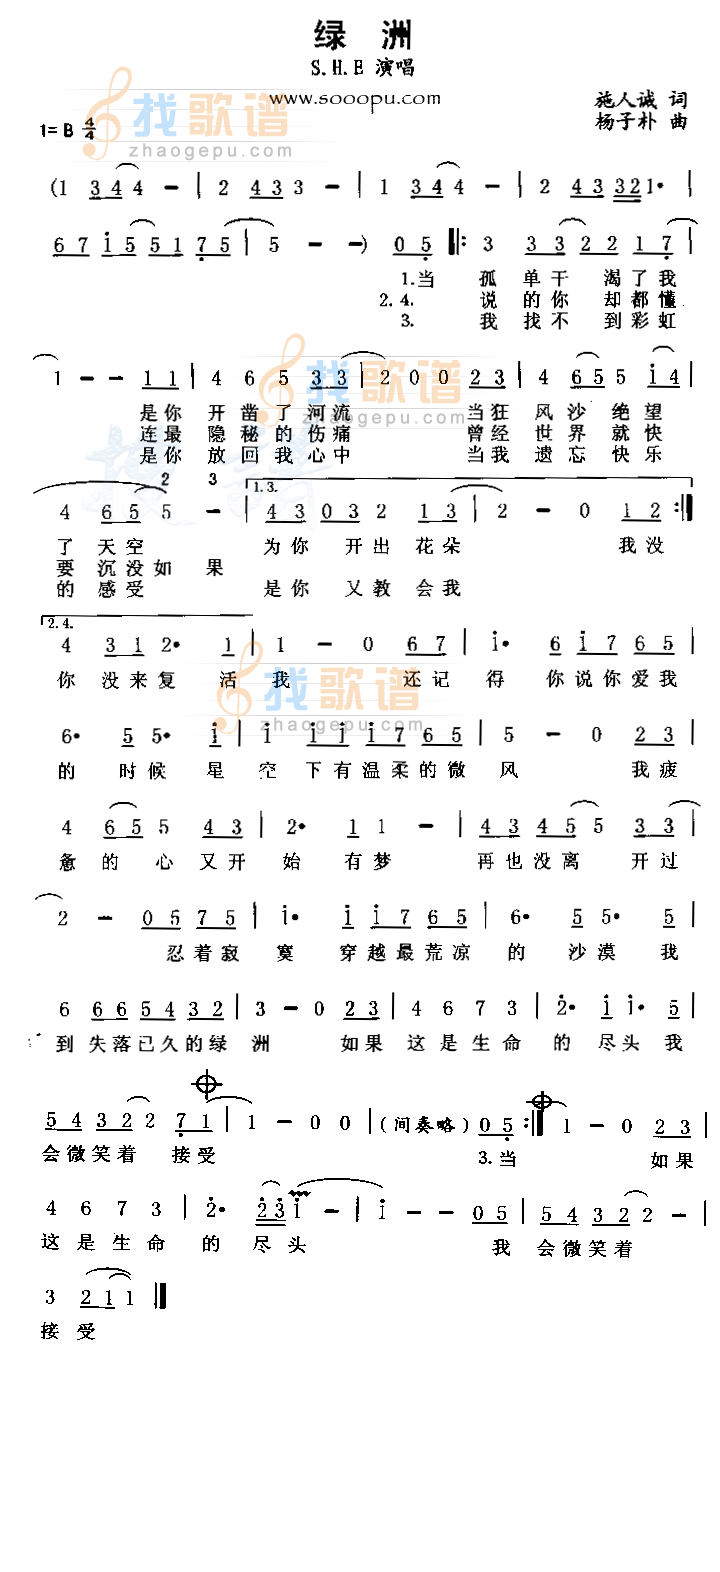 绿 洲
S.H.E 演唱
www.sooopu.com
施人诚 词
1= B 4/4
杨子朴 曲
找歌谱
zhaogepu.com
(1 3 4 4 - | 2 4 3 3 - | 1 3 4 4 - | 2 4 3 3 2 1· |
6 7 1 5 5 1 7 5 | 5 - - ) 0 5 ‖: 3 3 3 2 2 1 7 |
1.当 孤 单 干 渴 了 我
2.4. 说 的 你 却 都 懂
3. 我 找 不 到 彩 虹
1 - - 1 1 | 4 6 5 3 3 | 2 0 0 2 3 | 4 6 5 5 1 4 |
找歌谱
zhaogepu.com
是 你 开 凿 了 河 流 当 狂 风 沙 绝 望
连 最 隐 秘 的 伤 痛 曾 经 世 界 就 快
是 你 放 回 我 心 中 当 我 遗 忘 快 乐
2 3
1.3.
4 6 5 5 - | 4 3 0 3 2 1 3 | 2 - 0 1 2 :‖
了 天 空 为 你 开 出 花 朵 我 没
要 沉 没 如 果
的 感 受 是 你 又 教 会 我
2.4.
4 3 1 2· 1 | 1 - 0 6 7 | 1· 6 1 7 6 5 |
你 没 来 复 活 我 还 记 得 你 说 你 爱 我
找歌谱
zhaogepu.com
6· 5 5· 1 | 1 1 1 1 7 6 5 | 5 - 0 2 3 |
的 时 候 星 空 下 有 温 柔 的 微 风 我 疲
4 6 5 5 4 3 | 2· 1 1 - | 4 3 4 5 5 3 3 |
惫 的 心 又 开 始 有 梦 再 也 没 离 开 过
2 - 0 5 7 5 | 1· 1 1 7 6 5 | 6· 5 5· 5 |
忍 着 寂 寞 穿 越 最 荒 凉 的 沙 漠 我
6 6 6 5 4 3 2 | 3 - 0 2 3 | 4 6 7 3 | 2· 1 1· 5 |
到 失 落 已 久 的 绿 洲 如 果 这 是 生 命 的 尽 头 我
5 4 3 2 2 7 1 | 1 - 0 0 | (间奏略) 0 5 :‖ 1 - 0 2 3 |
会 微 笑 着 接 受 3.当 如 果
4 6 7 3 | 2· 2 3 1 - | 1 - - 0 5 | 5 4 3 2 2 - |
这 是 生 命 的 尽 头 我 会 微 笑 着
3 2 1 1 ‖
接 受